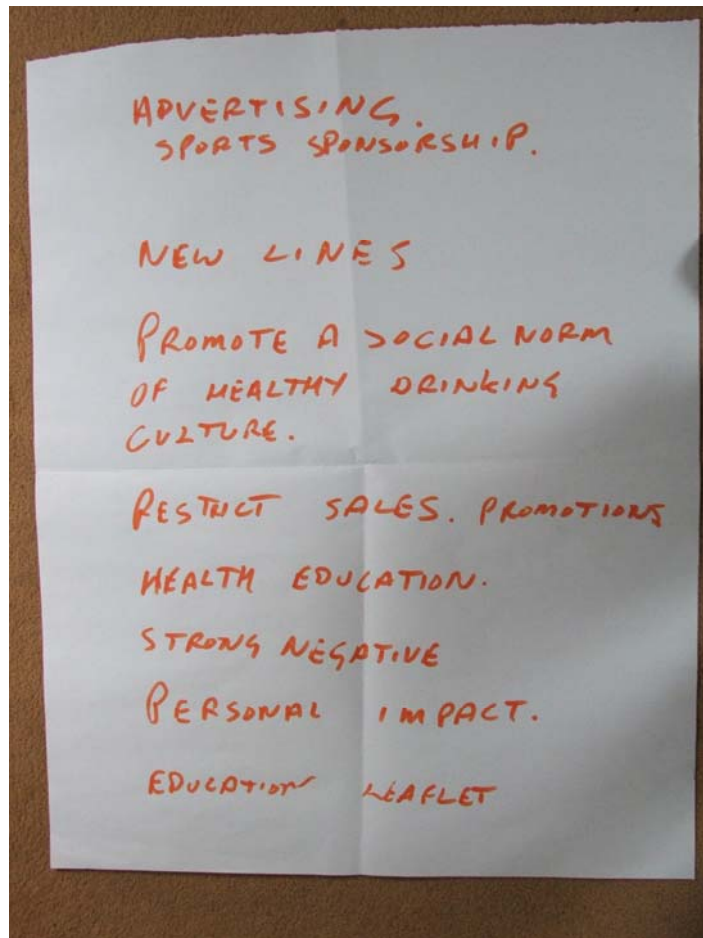 ADVERTISING.
SPORTS SPONSORSHIP.
NEW LINES
PROMOTE A SOCIAL NORM
OF HEALTHY DRINKING
CULTURE.
RESTRICT SALES. PROMOTIONS
HEALTH EDUCATION.
STRONG NEGATIVE
PERSONAL IMPACT.
EDUCATION LEAFLET